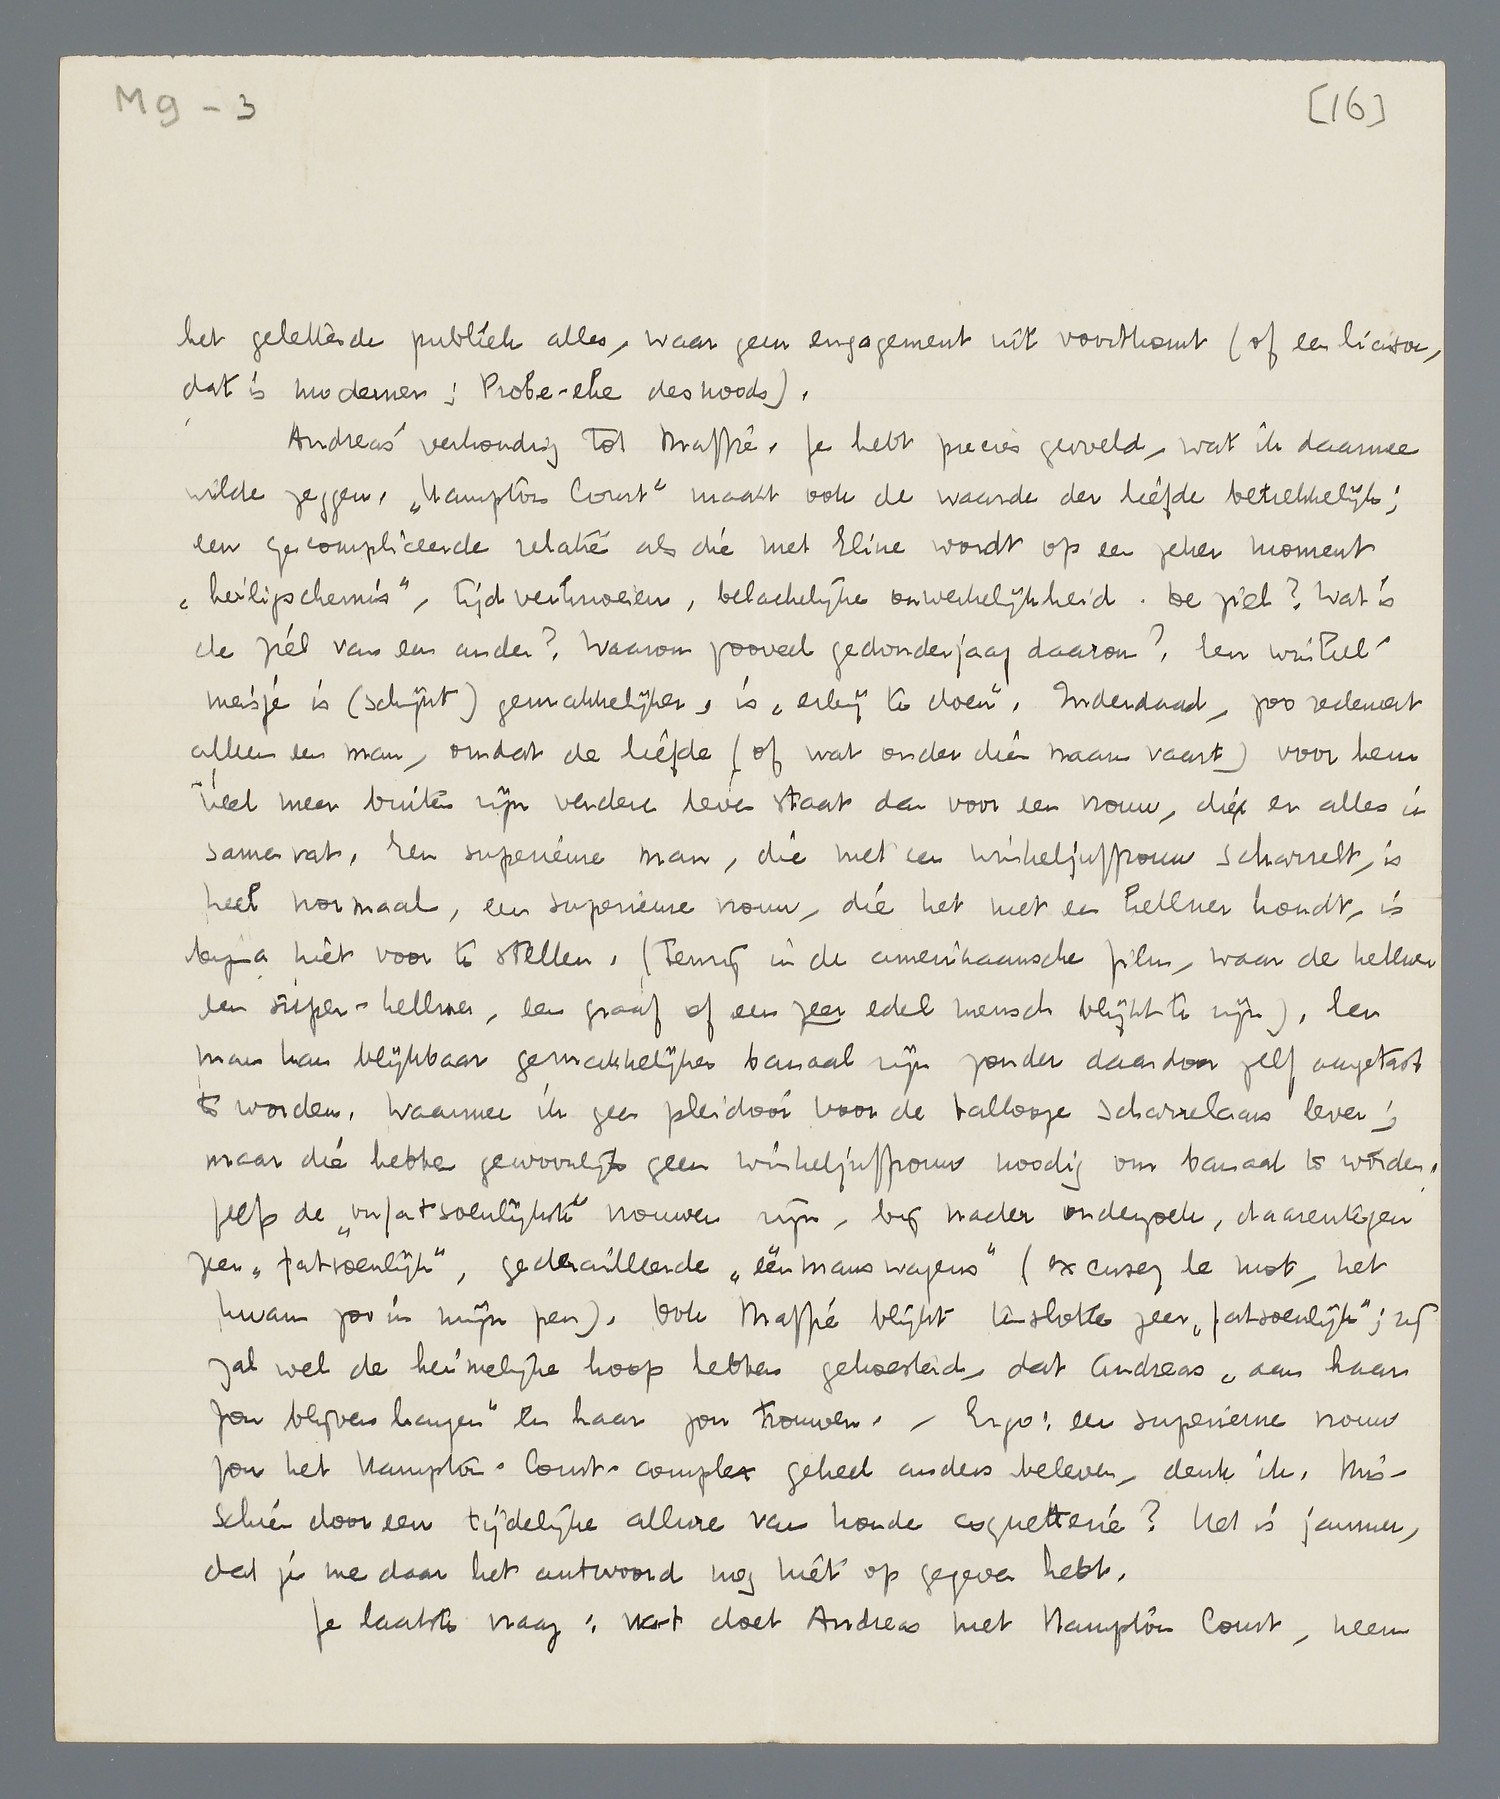 M9 - 3
[16]
het geletterde publiek alles, waar geen engagement uit voortkomt (of een liaison,
dat is moderner; Probe-ehe desnoods).
Andreas' verhouding tot Maffie. Je hebt precies gevoeld, wat ik daarmee
wilde zeggen. „Hampton Court" maakt ook de waarde der liefde betrekkelijk;
een gecompliceerde relatie als die met Eline wordt op een zeker moment
„heiligschennis", tijd verknoeien, belachelijke onwerkelijkheid. De ziel? Wat is
de ziel van een ander? Waarom zooveel gedonderjaag daarom? Een winkel-
meisje is (schijnt) gemakkelijker, is „erbij te doen". Inderdaad, zoo redeneert
alleen een man, omdat de liefde (of wat onder dien naam vaart) voor hem
veel meer buiten zijn verdere leven staat dan voor een vrouw, die er alles in
samenvat. Een superieure man, die met een winkeljuffrouw scharrelt, is
heel normaal, een superieure vrouw, die het met een kellner houdt, is
bijna niet voor te stellen. (Tenzij in de amerikaansche film, waar de kellner
een super-kellner, een graaf of een zeer edel mensch blijkt te zijn). Een
man kan blijkbaar gemakkelijker banaal zijn zonder daardoor zelf aangetast
te worden. Waarmee ik geen pleidooi voor de tallooze scharrelaars lever;
maar die hebben gewoonlijk geen winkeljuffrouw noodig om banaal te worden.
Zelfs de „onfatsoenlijkste" vrouwen zijn, bij nader onderzoek, daarentegen
zeer „fatsoenlijk", gederailleerde „éénmanswagens" (excusez le mot, het
kwam zoo in mijn pen). Ook Maffie blijkt tenslotte zeer „fatsoenlijk"; zij
zal wel de heimelijke hoop hebben gekoesterd, dat Andreas „aan haar
zou blijven hangen" en haar zou trouwen. - Ergo: een superieure vrouw
zou het Hampton-Court-complex geheel anders beleven, denk ik. Mis-
schien door een tijdelijke allure van koude coquetterie? Het is jammer,
dat je me daar het antwoord nog niet op gegeven hebt.
Je laatste vraag: wat doet Andreas met Hampton Court, neem